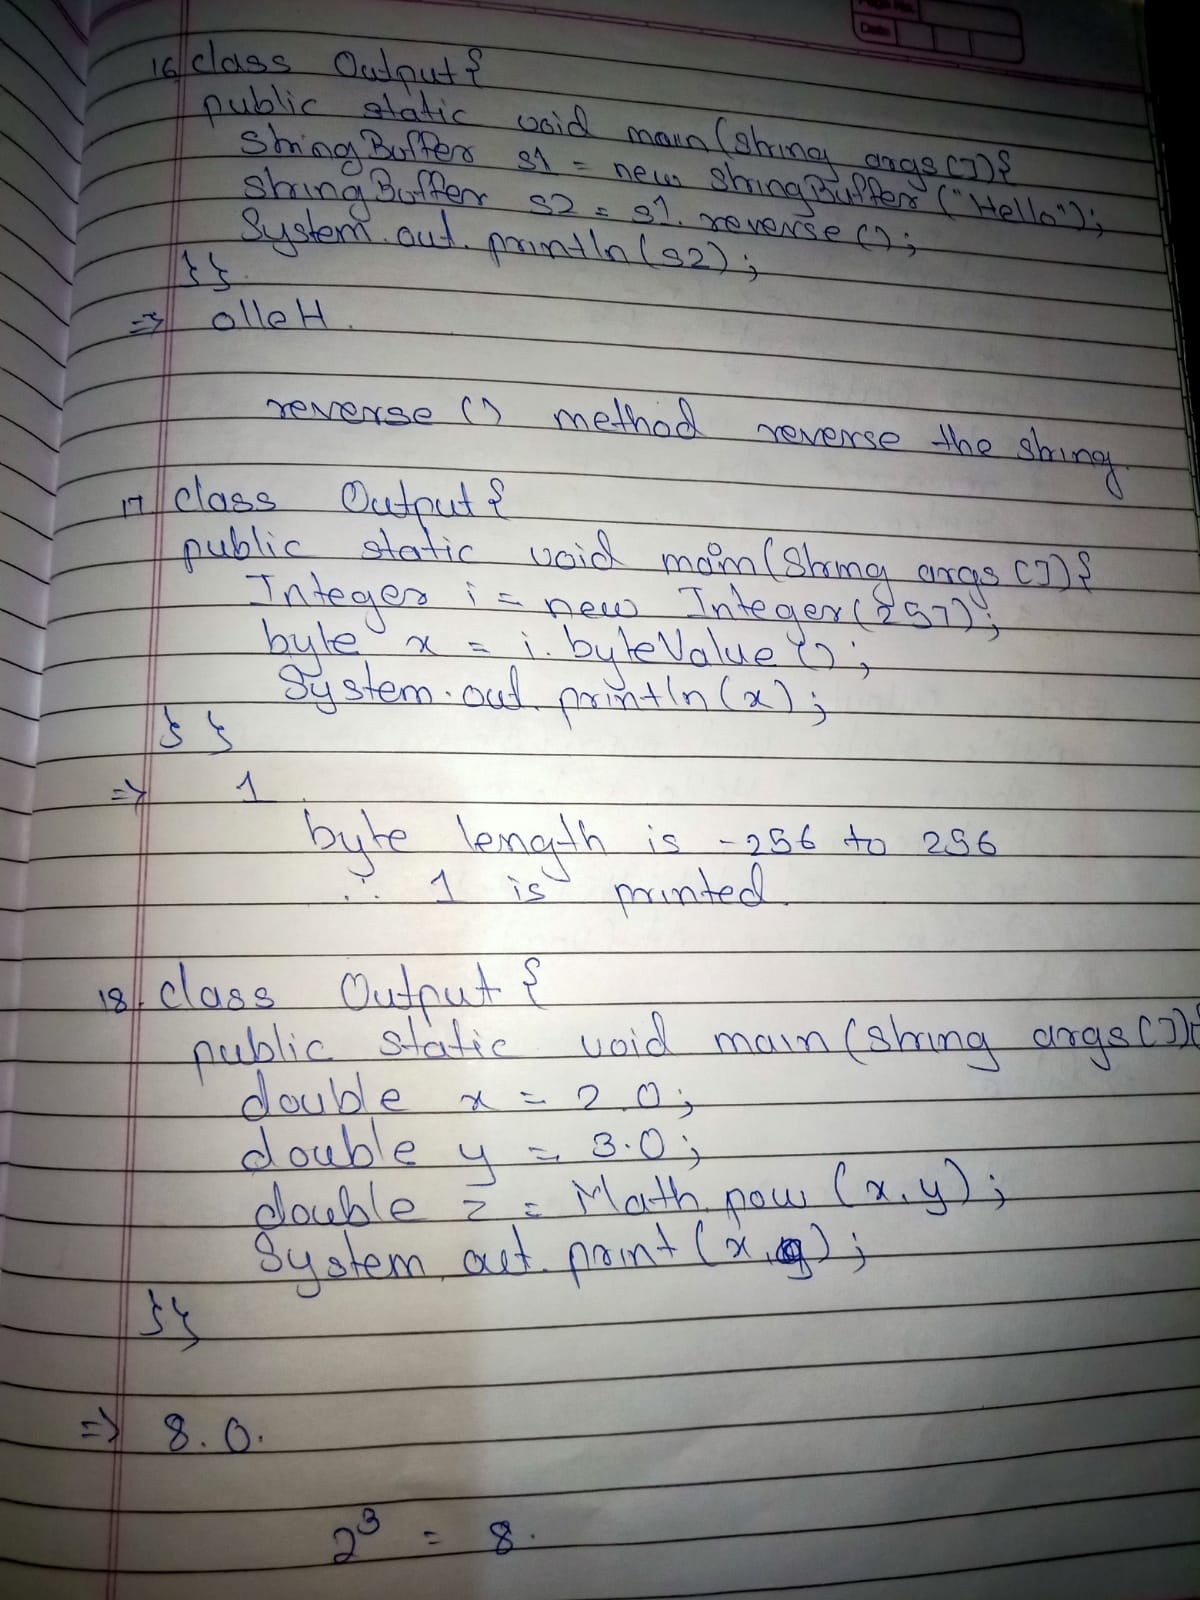 Page No.
Date
16 class Output {
public static void main (String args []) {
StringBuffer s1 = new StringBuffer ("Hello");
StringBuffer s2 = s1. reverse ();
System. out. println (s2);
}}
=> olleH.
reverse () method reverse the string.
17 class Output {
public static void main (String args []) {
Integer i = new Integer (257);
byte x = i. byteValue ();
System. out. println (x);
} }
=> 1
byte length is -256 to 256
∴ 1 is printed.
18. class Output {
public static void main (string args []) {
double x = 2.0;
double y = 3.0;
double z = Math. pow (x, y);
System. out. print (x, );
}}
=> 8.0.
2³ = 8.